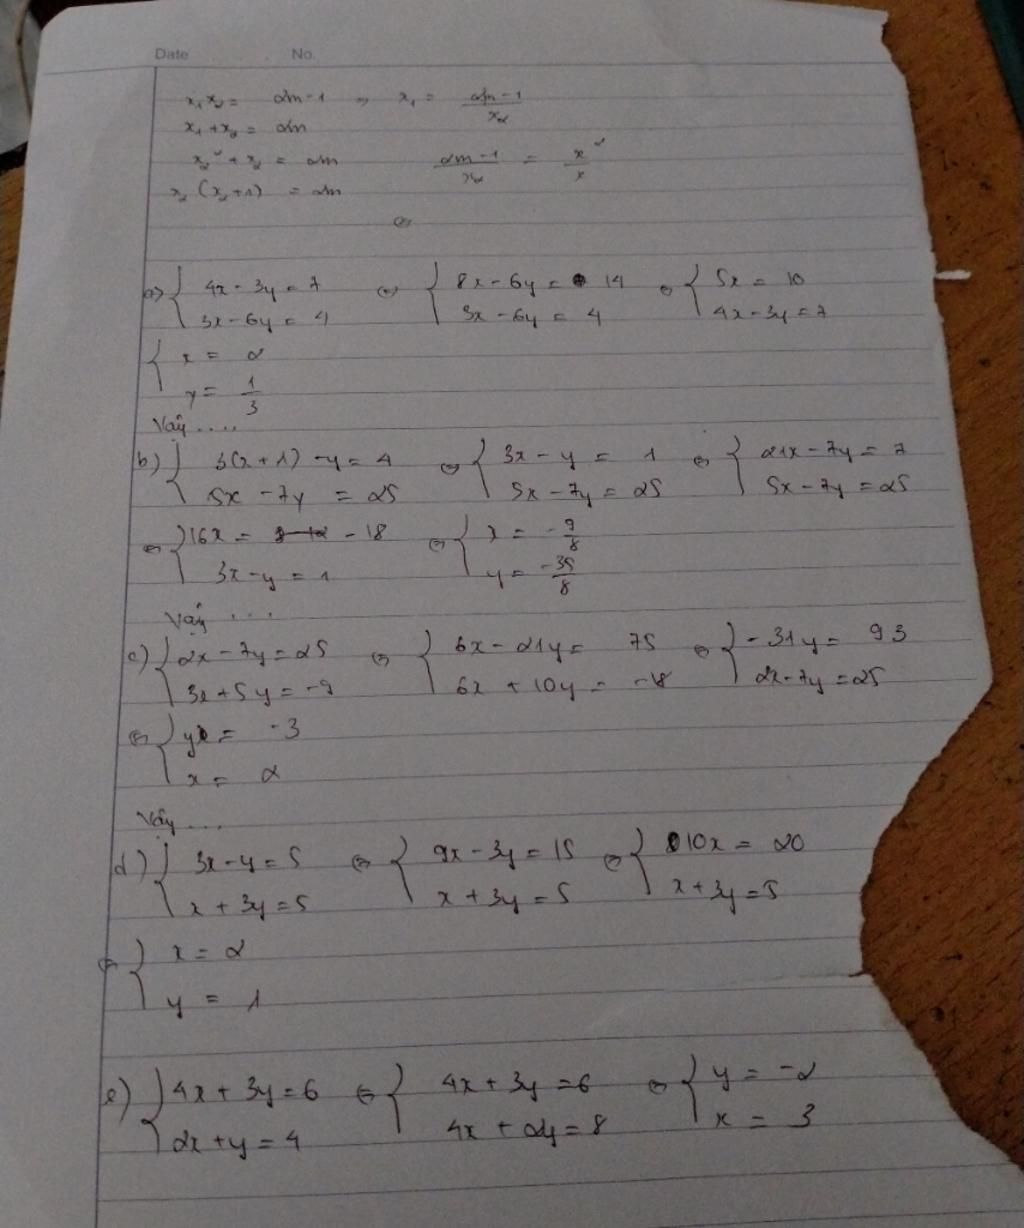 Date No.
x₁x₂ = 2m-1 => x₁ = (2m-1)/x₂
x₁+x₂ = 2m
x₂² + x₂ = 2m (2m-1)/x₂ = x²/x
x₂(x₂+1) = 2m
⇔
a) { 4x-3y=7 ; 3x-6y=4 ⇔ { 8x-6y=14 ; 3x-6y=4 ⇔ { 5x=10 ; 4x-3y=7
{ x = 2
y = 1/3
Vậy ....
b) { 3(x+1)-y=4 ; 5x-7y=25 ⇔ { 3x-y=1 ; 5x-7y=25 ⇔ { 21x-7y=7 ; 5x-7y=25
⇔ { 16x = -18 ; 3x-y=1 ⇔ { x = -9/8 ; y = -35/8
Vậy ...
c) { 2x-7y=25 ; 3x+5y=-9 ⇔ { 6x-21y=75 ; 6x+10y=-18 ⇔ { -31y=93 ; 2x-7y=25
⇔ { y = -3
x = 2
Vậy ...
d) { 3x-y=5 ; x+3y=5 ⇔ { 9x-3y=15 ; x+3y=5 ⇔ { 10x=20 ; x+3y=5
⇔ { x = 2
y = 1
e) { 4x+3y=6 ; 2x+y=4 ⇔ { 4x+3y=6 ; 4x+2y=8 ⇔ { y=-2 ; x=3